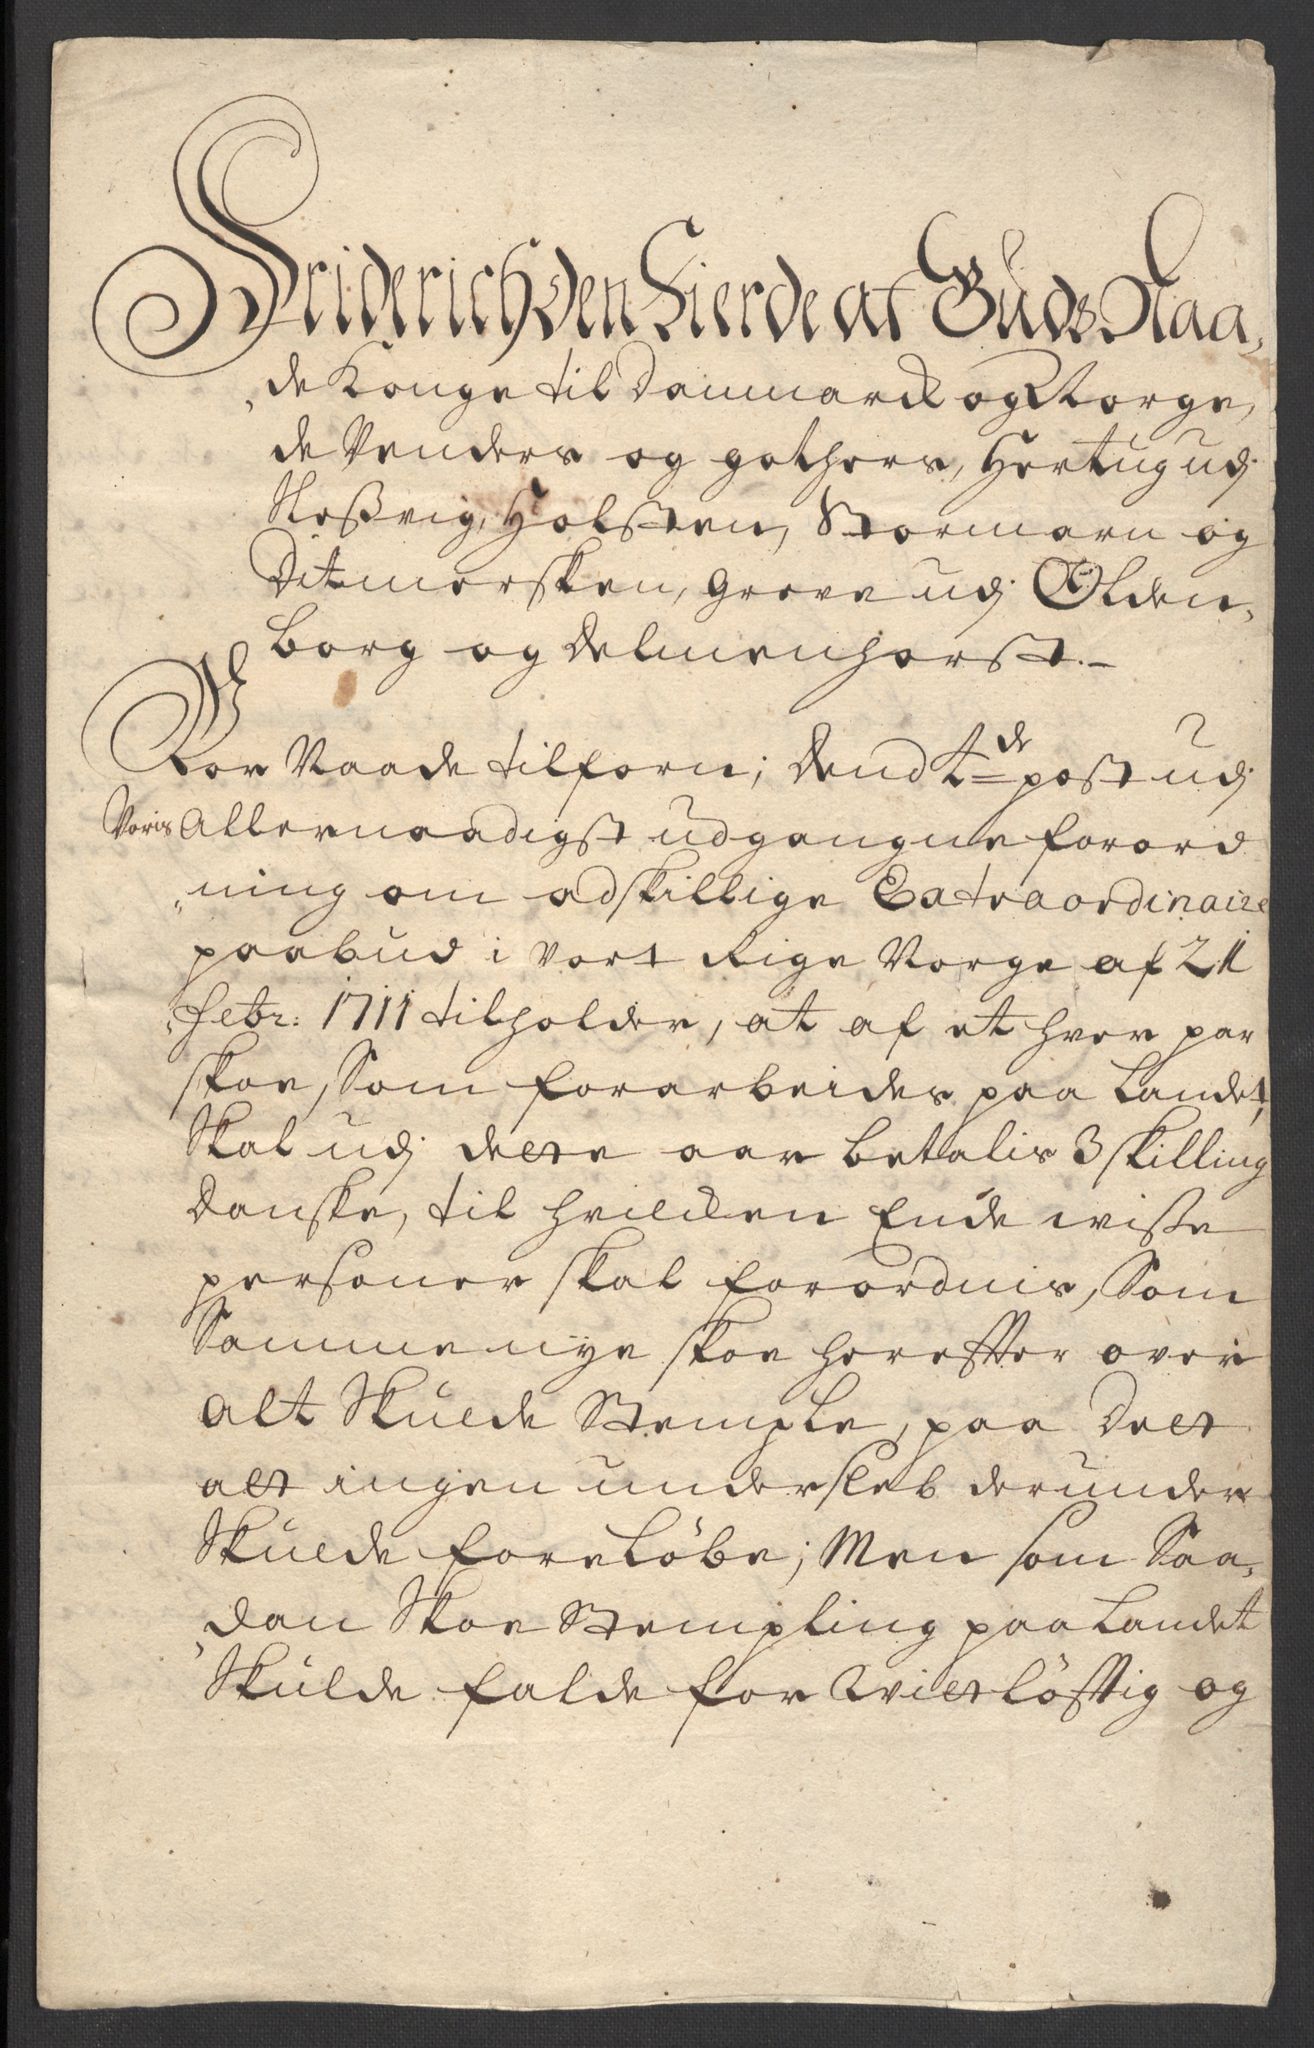 Friderich den Fierde af Guds Naa,
de Konge til Danmarck og Norge,
de Venders og gothers, Hertug udj
Sleßvig, Holsten, Stormarn og
Ditmersken, Greve udj Olden,
borg og Delmenhorst.-
Vor Naade tilforn; Dend 4de post udj
Voris Allernaadigst udgangne forord
ning om adskillige Extraordinaire
paabud i vort Rige Norge af 21
febr: 1711 tilholder, at af et hver par
skoe, Som forarbeides paa Landet,
Skal udj dette aar betalis 3 skilling
danske, til hvilcken Ende wiße
personer skal forordnis, Som
Samme nye skoe herefter over
alt Skulde Stemple, paa Det
at ingen undersleb derunder
Skulde foreløbe; Men som Saa,
dan Skoe Stempling paa Landet
Skulde falde for Witløftig og